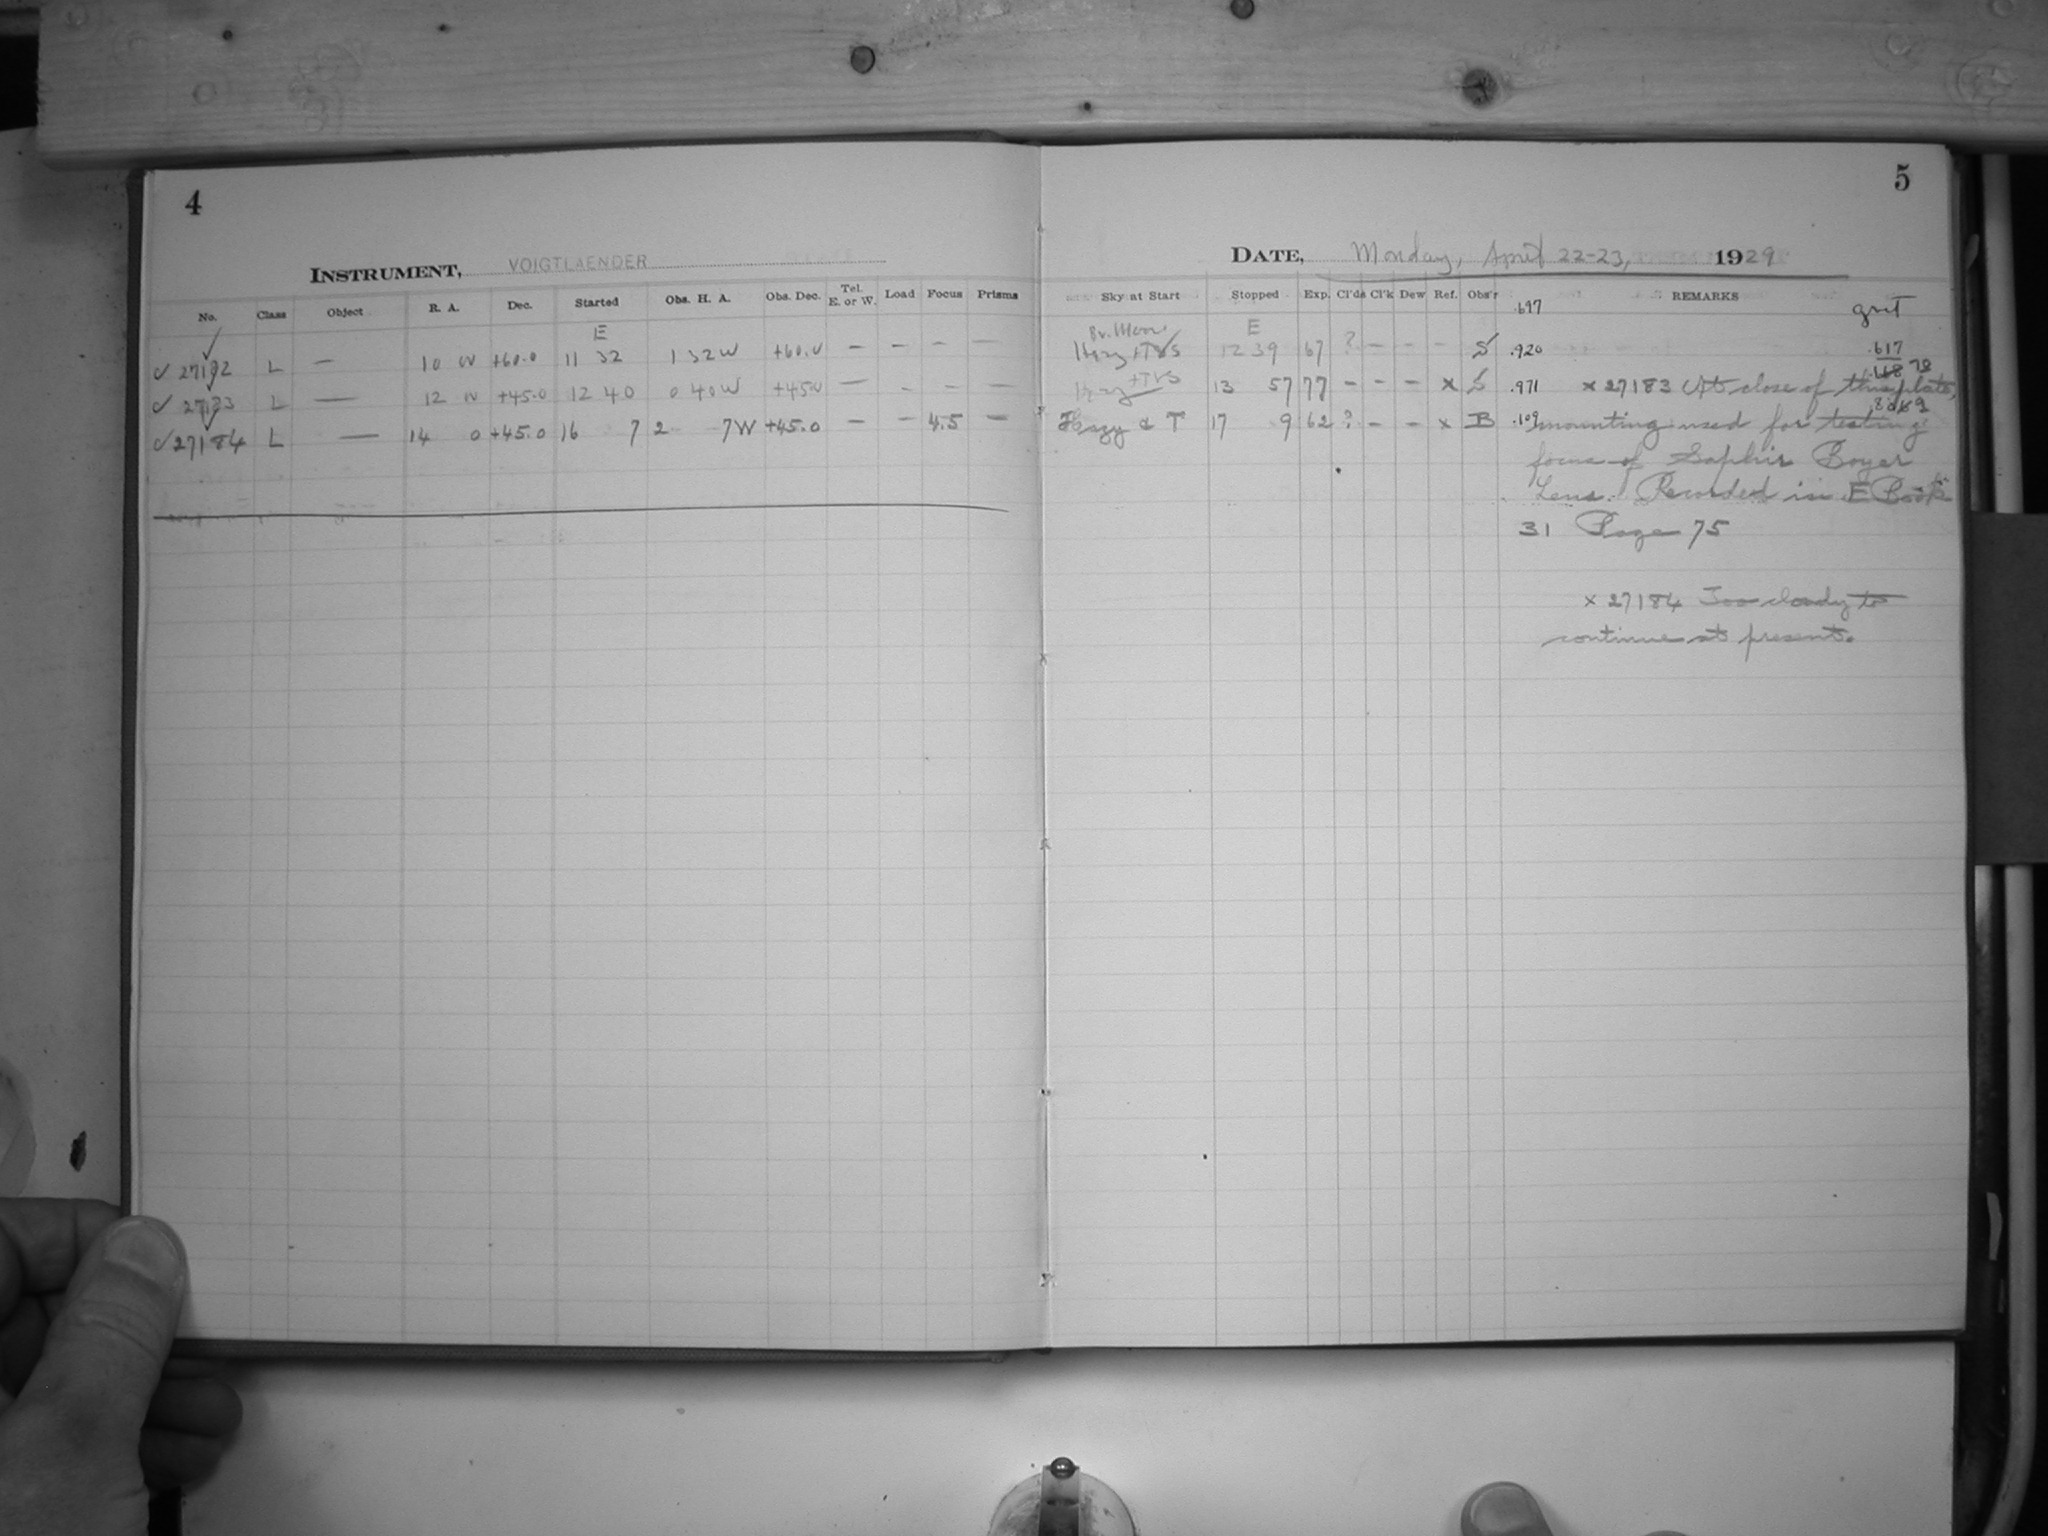 4
5
INSTRUMENT, VOIGTLAENDER
DATE, Monday, April 22-23, 1929
No. Class Object R. A. Dec. Started Obs. H. A. Obs. Dec. Tel. E. or W. Load Focus Prisms Sky at Start Stopped Exp. Cl'ds Cl'k Dew Ref. Obs'r REMARKS
.697 gmt
E Br. Moon E
✓ 27182 L — 10 0 +60.0 11 32 1 32W +60.0 — – – — Hazy +TVS 12 39 67 ? – – – S .920 .617
✓ 27183 L — 12 0 +45.0 12 40 0 40W +45.0 — – – — Hazy +TVS 13 57 77 – – – x S .971 x 27183 At close of this plate,
✓ 27184 L — 14 0 +45.0 16 7 2 7W +45.0 – – 4.5 – Hazy & T 17 9 62 ? – – x B .109 mounting used for testing
focus of Saphir Boyer
Lens. Recorded in E Book
31 Page 75
x 27184 Too cloudy to
continue at present.